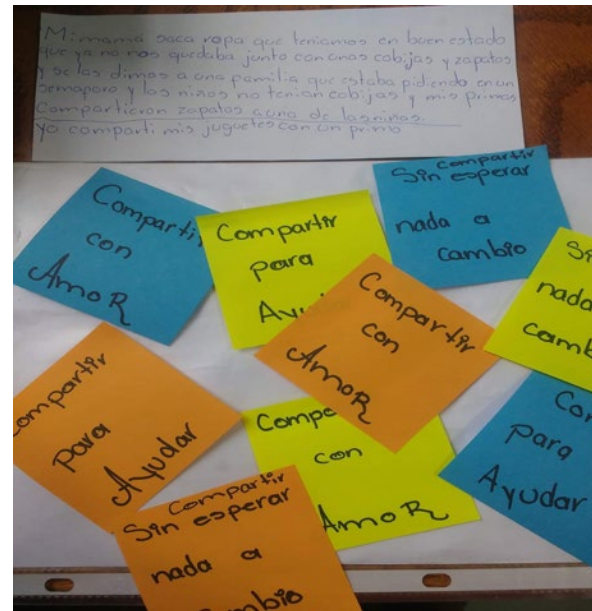 Mi mamá saca ropa que teniamos en buen estado
que ya no nos quedaba junto con unas cobijas y zapatos
y se las dimos a una familia que estaba pidiendo en un
semaforo y los niños no tenian cobijas y mis primas
Compartieron zapatos a una de las niñas.
yo comparti mis juguetes con un primo
Compartir
con
Amor
Compartir
para
Compartir
Sin esperar
nada a
cambio
nada
Compartir
con
Amor
para
Ayudar
para
Ayudar
con
Amor
Compartir
Sin esperar
nada a